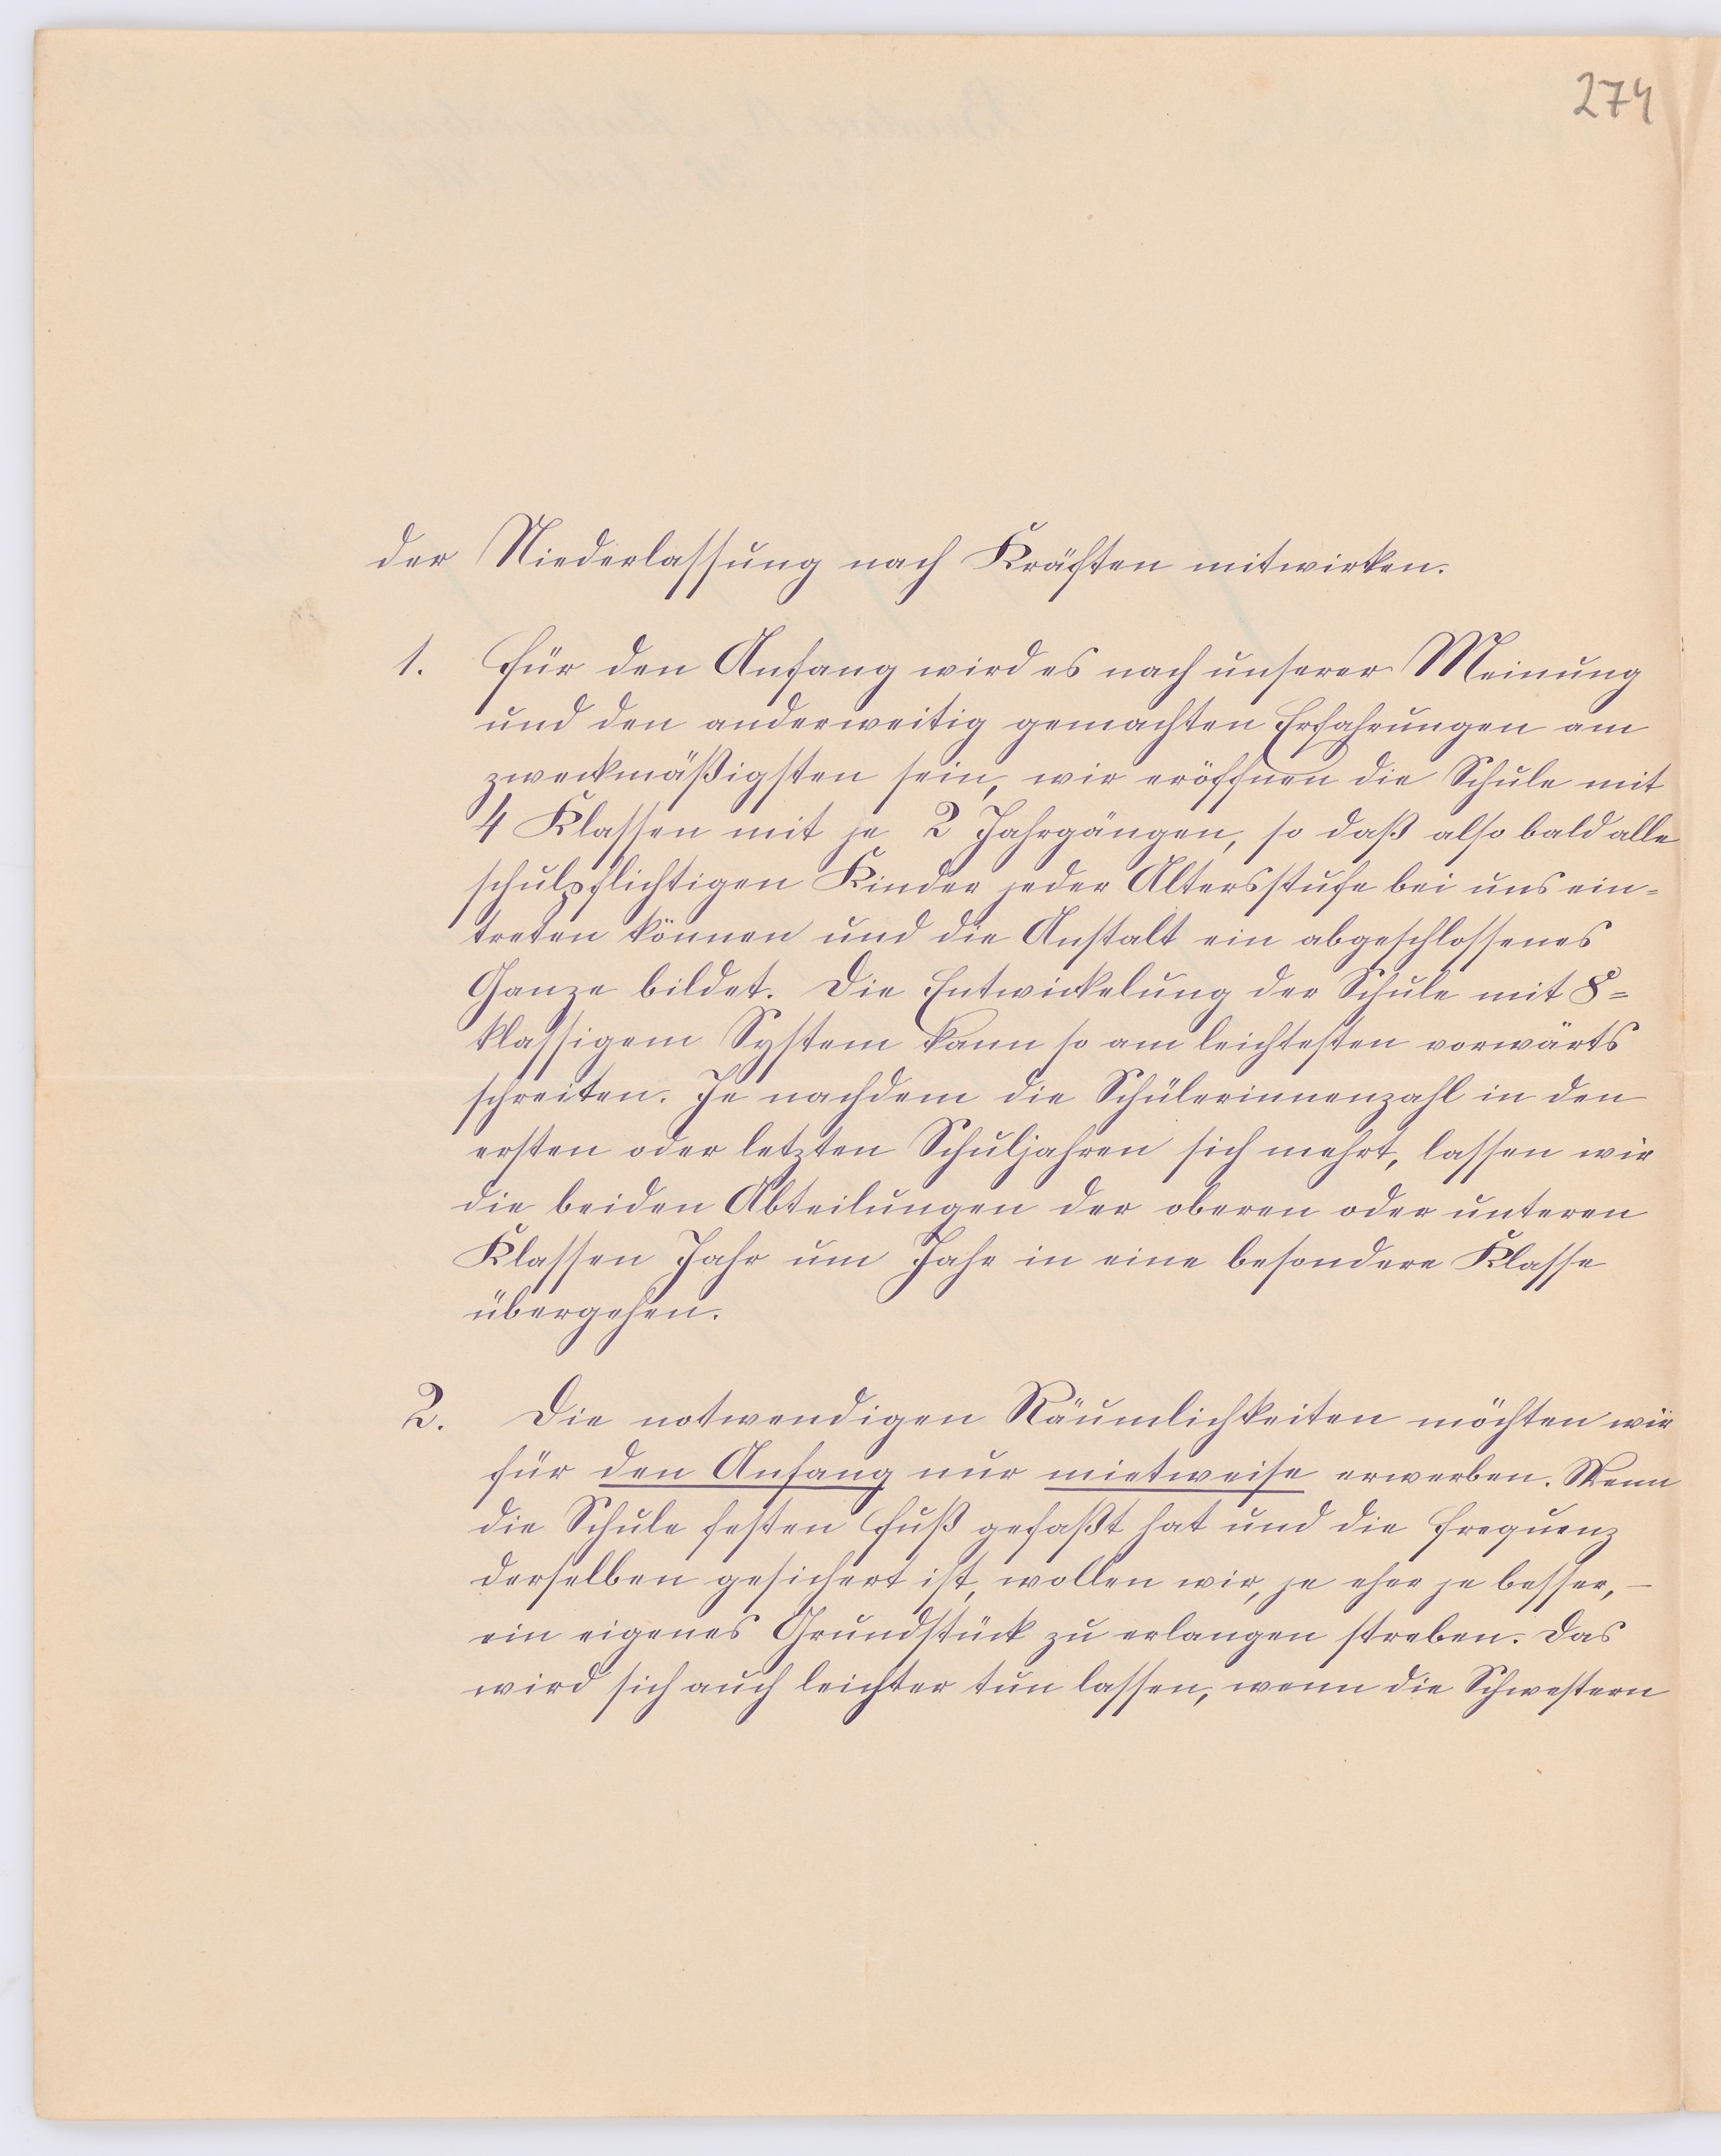 274
der Niederlassung nach Kräften mitwirken.
1. Für den Anfang wird es nach unserer Meinung
und den anderweitig gemachten Erfahrungen am
zweckmäßigsten sein, wir eröffnen die Schule mit
4 Klassen mit je 2 Jahrgängen, so daß also bald alle
schulpflichtigen Kinder jeder Altersstufe bei uns ein-
treten können und die Anstalt ein abgeschlossenes
Ganze bildet. Die Entwickelung der Schule mit 8-
klassigem System kann so am leichtesten vorwärts
schreiten. Je nachdem die Schülerinnenzahl in den
ersten oder letzten Schuljahren sich mehrt, lassen wir
die beiden Abteilungen der oberen oder unteren
Klassen Jahr um Jahr in eine besondere Klasse
übergehen.
2. Die notwendigen Räumlichkeiten möchten wir
für den Anfang nur mietweise erwerben. Wenn
die Schule festen Fuß gefaßt hat und die Frequenz
derselben gesichert ist, wollen wir, je eher je besser, –
ein eigenes Grundstück zu erlangen streben. Das
wird sich auch leichter tun lassen, wenn die Schwestern